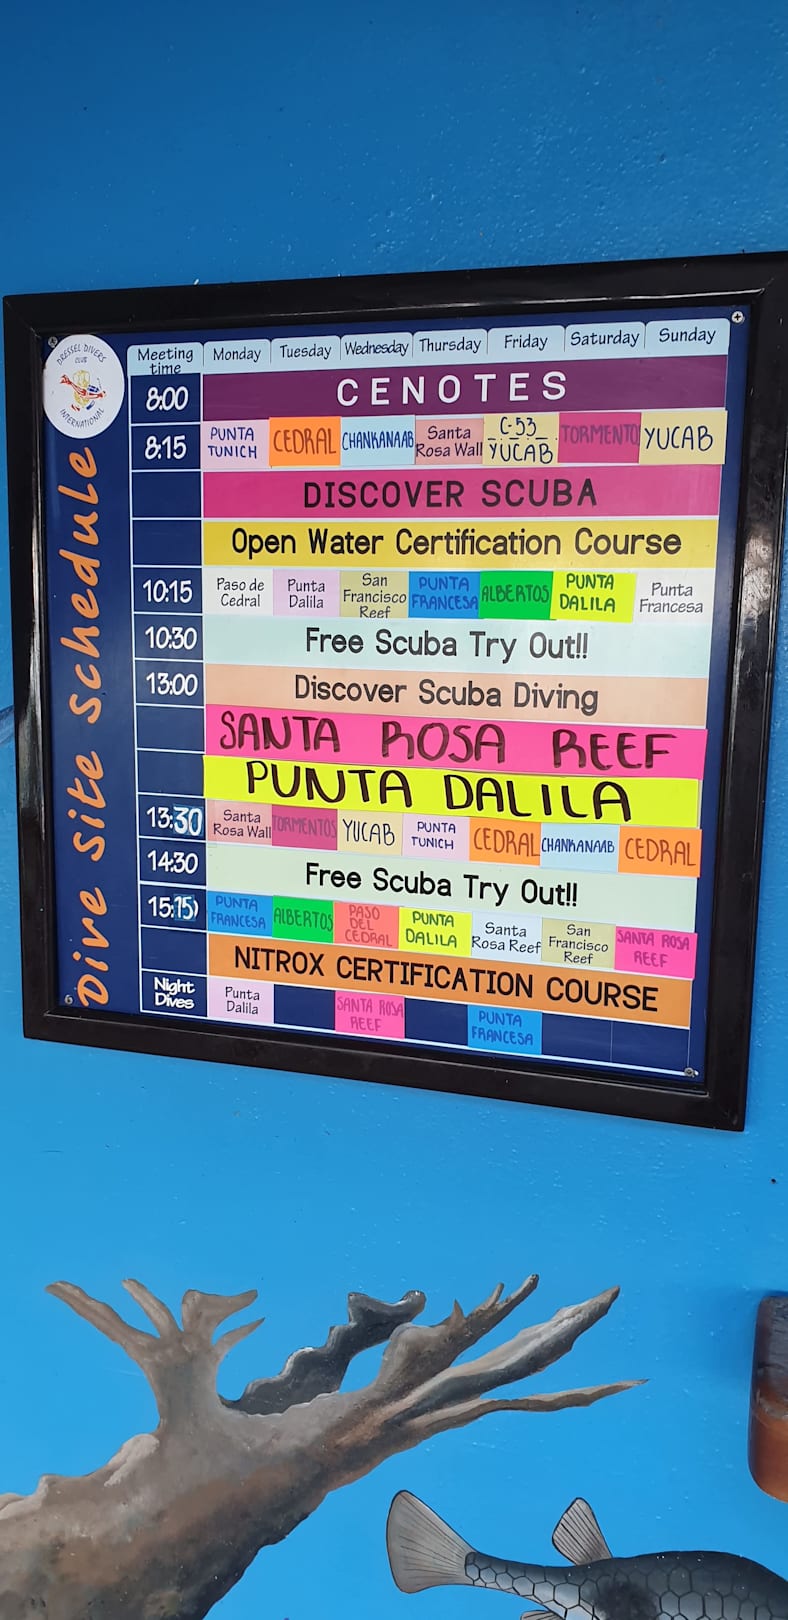 DRESSEL DIVERS
CLUB
INTERNATIONAL
Dive site schedule
Meeting time Monday Tuesday Wednesday Thursday Friday Saturday Sunday
8:00 CENOTES
8:15 PUNTA TUNICH CEDRAL CHANKANAAB Santa Rosa Wall C-53 YUCAB TORMENTO YUCAB
DISCOVER SCUBA
Open Water Certification Course
10:15 Paso de Cedral Punta Dalila San Francisco Reef PUNTA FRANCESA ALBERTOS PUNTA DALILA Punta Francesa
10:30 Free Scuba Try Out!!
13:00 Discover Scuba Diving
SANTA ROSA REEF
PUNTA DALILA
13:30 Santa Rosa Wall TORMENTOS YUCAB PUNTA TUNICH CEDRAL CHANKANAAB CEDRAL
14:30 Free Scuba Try Out!!
15:15 PUNTA FRANCESA ALBERTOS PASO DEL CEDRAL PUNTA DALILA Santa Rosa Reef San Francisco Reef SANTA ROSA REEF
NITROX CERTIFICATION COURSE
Night Dives Punta Dalila SANTA ROSA REEF PUNTA FRANCESA